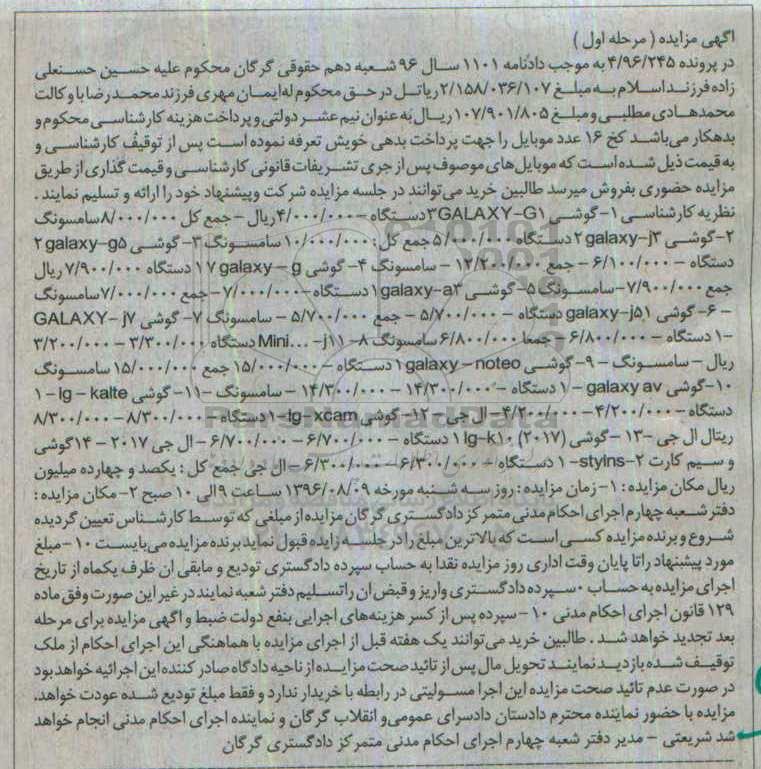 آگهی مزایده ( مرحله اول )
در پرونده ۴/۹۶/۲۴۵ به موجب دادنامه ۱۱۰۱ سال ۹۶ شعبه دهم حقوقی گرگان محکوم علیه حسین حسنعلی
زاده فرزند اسلام به مبلغ ۲/۱۵۸/۰۳۶/۱۰۷ ریاتل در حق محکوم له ایمان مهری فرزند محمد رضا با وکالت
محمدهادی مطلبی و مبلغ ۱۰۷/۹۰۱/۸۰۵ ریال به عنوان نیم عشر دولتی و پرداخت هزینه کارشناسی محکوم و
بدهکار می‌باشد کخ ۱۶ عدد موبایل را جهت پرداخت بدهی خویش تعرفه نموده است پس از توقیف کارشناسی و
به قیمت ذیل شده است که موبایل های موصوف پس از جری تشریفات قانونی کارشناسی و قیمت گذاری از طریق
مزایده حضوری بفروش میرسد طالبین خرید می‌توانند در جلسه مزایده شرکت و پیشنهاد خود را ارائه و تسلیم نمایند .
نظریه کارشناسی ۱- گوشی GALAXY-G۱ ۳دستگاه -۴/۰۰۰/۰۰۰ریال - جمع کل ۸/۰۰۰/۰۰۰سامسونگ
۲-گوشی galaxy-j۳ ۲ دستگاه ۵/۰۰۰/۰۰۰ جمع کل: ۱۰/۰۰۰/۰۰۰ سامسونگ ۳- گوشی galaxy-g۵ ۲
دستگاه - ۶/۱۰۰/۰۰۰ - جمع ۱۲/۲۰۰/۰۰۰ - سامسونگ ۴- گوشی galaxy - g ۱۷ دستگاه ۷/۹۰۰/۰۰۰ ریال
جمع ۷/۹۰۰/۰۰۰-سامسونگ ۵- گوشی galaxy-a۳ ۱دستگاه -۷/۰۰۰/۰۰۰- جمع ۷/۰۰۰/۰۰۰سامسونگ
- ۶- گوشی galaxy-j۵۱ دستگاه - ۵/۷۰۰/۰۰۰ - جمع ۵/۷۰۰/۰۰۰ - سامسونگ ۷- گوشی GALAXY- j۷
-۱ دستگاه - ۶/۸۰۰/۰۰۰ - جمعا ۶/۸۰۰/۰۰۰ سامسونگ ۸- Mini... -j۱۱ دستگاه ۳/۳۰۰/۰۰۰ - ۳/۲۰۰/۰۰۰
ریال - سامسونگ - ۹- گوشی galaxy - noteo ۱ دستگاه - ۱۵/۰۰۰/۰۰۰ جمع ۱۵/۰۰۰/۰۰۰ سامسونگ
۱۰-گوشی galaxy av -۱ دستگاه -۱۴/۳۰۰/۰۰۰ - ۱۴/۳۰۰/۰۰۰ - سامسونگ -۱۱- گوشی lg - kalte -۱
دستگاه -۴/۲۰۰/۰۰۰-۴/۲۰۰/۰۰۰- ال جی - ۱۲- گوشی lg-xcam -۱ دستگاه -۸/۳۰۰/۰۰۰ - ۸/۳۰۰/۰۰۰
ریتال ال جی -۱۳ -گوشی lg-k۱۰ (۲۰۱۷) ۱ دستگاه - ۶/۷۰۰/۰۰۰ - ۶/۷۰۰/۰۰۰ - ال جی ۲۰۱۷ - ۱۴گوشی
و سیم کارت stylns-۲ -۱ دستگاه -۶/۳۰۰/۰۰۰ - ۶/۳۰۰/۰۰۰ - ال جی جمع کل : یکصد و چهارده میلیون
ریال مکان مزایده : ۱- زمان مزایده : روز سه شنبه مورخه ۱۳۹۶/۰۸/۰۹ ساعت ۹ الی ۱۰ صبح ۲- مکان مزایده :
دفتر شعبه چهارم اجرای احکام مدنی متمرکز دادگستری گرگان مزایده از مبلغی که توسط کارشناس تعیین گردیده
شروع و برنده مزایده کسی است که بالاترین مبلغ را در جلسه زایده قبول نماید برنده مزایده می‌بایست ۱۰-مبلغ
مورد پیشنهاد راتا پایان وقت اداری روز مزایده نقدا به حساب سپرده دادگستری تودیع و مابقی ان ظرف یکماه از تاریخ
اجرای مزایده به حساب ۰سپرده دادگستری واریز و قبض ان راتسلیم دفتر شعبه نمایند در غیر این صورت وفق ماده
۱۲۹ قانون اجرای احکام مدنی ۱۰-سپرده پس از کسر هزینه‌های اجرایی بنفع دولت ضبط و اگهی مزایده برای مرحله
بعد تجدید خواهد شد . طالبین خرید می‌توانند یک هفته قبل از اجرای مزایده با هماهنگی این اجرای احکام از ملک
توقیف شده بازدید نمایند تحویل مال پس از تائید صحت مزایده از ناحیه دادگاه صادر کننده این اجرائیه خواهد بود
در صورت عدم تائید صحت مزایده این اجرا مسولیتی در رابطه با خریدار ندارد و فقط مبلغ تودیع شده عودت خواهد.
مزایده با حضور نماینده محترم دادستان دادسرای عمومی و انقلاب گرگان و نماینده اجرای احکام مدنی انجام خواهد
شد شریعتی - مدیر دفتر شعبه چهارم اجرای احکام مدنی متمرکز دادگستری گرگان